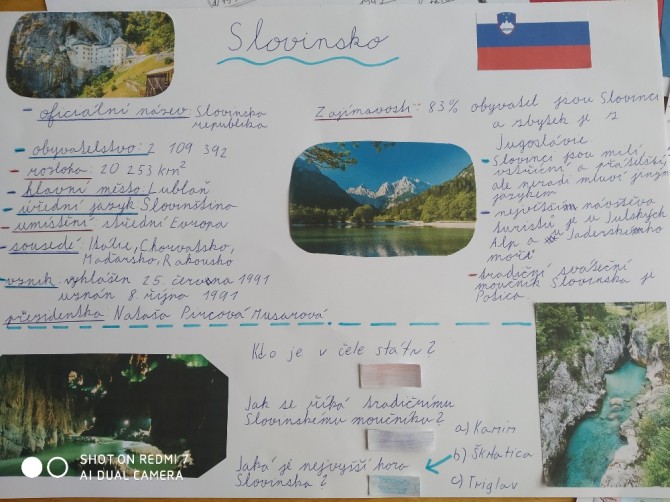 Slovinsko
- oficiální název: Slovinska
republika
- obyvatelstvo: 2 109 392
- rozloha: 20 253 km²
- hlavní město: Lublaň
- úřední jazyk Slovinština
- umístění střední Evropa
- sousedé Itálie, Chorvatsko,
Maďarsko, Rakousko
- vznik vyhlášen 25. června 1991
uznán 8. října 1991
prezidentka Nataša Pircová Musarová
Zajímavosti: 83% obyvatel jsou Slovinci
a zbytek je z
Jugoslávie
- Slovinci jsou milí,
vstřícní a přátelští
ale neradi mluví jiným
jazykem
- největším návštěva
turistů je v Julských
Alp a v Jaderského
moře
- tradiční sváteční
moučník Slovinska je
Potica
Kdo je v čele státu?
Jak se říká tradičnímu
Slovinskému moučníku?
Jaká je nejvyšší hora
Slovinska?
a) Kamin
b) Škrlatica
c) Triglav
SHOT ON REDMI 7
AI DUAL CAMERA